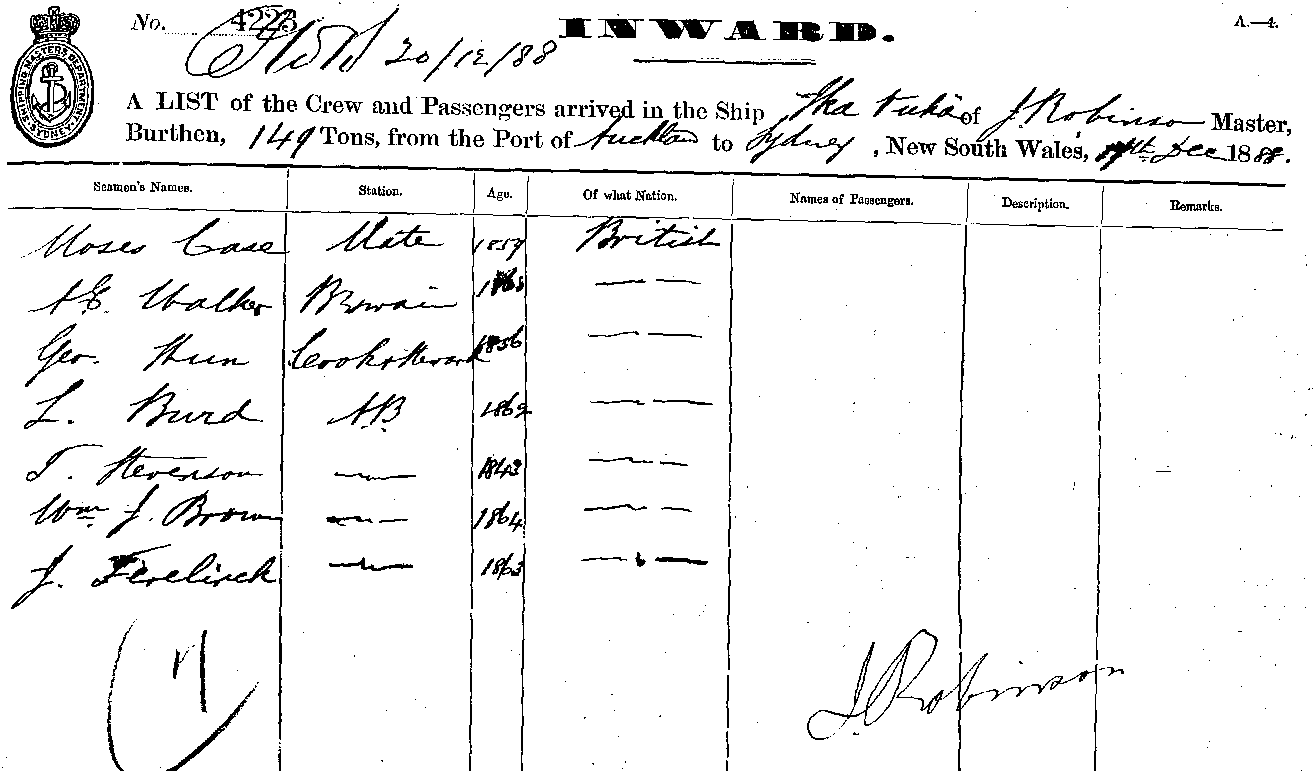 No. 4223
20/12/88
INWARD.
A.—4.
SHIPPING MASTERS DEPARTMENT SYDNEY
A LIST of the Crew and Passengers arrived in the Ship Ika of J. Robinson Master,
Burthen, 149 Tons, from the Port of Auckland to Sydney, New South Wales, Dec 1888.
Seamen's Names. Station. Age. Of what Nation. Names of Passengers. Description. Remarks.
Moses Case Mate 1857 British
Walker — —
Geo. Hun Cook & Steward 1856 — —
L. Burd A.B. 1862 — —
T. Stevenson — 1843 — —
Wm. J. Brown — 1864 — —
J. — 1863 — —
7
J. Robinson